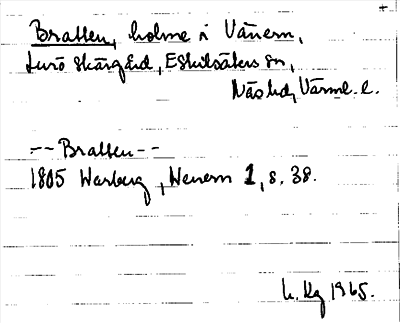 Bratten, holme i Vänern,
Lurö skärgård, Eskilsäters sn,
Näs hd, Värml. l.
-- Bratten --
1805 Warberg, Wenern 1, s. 38.
1965.